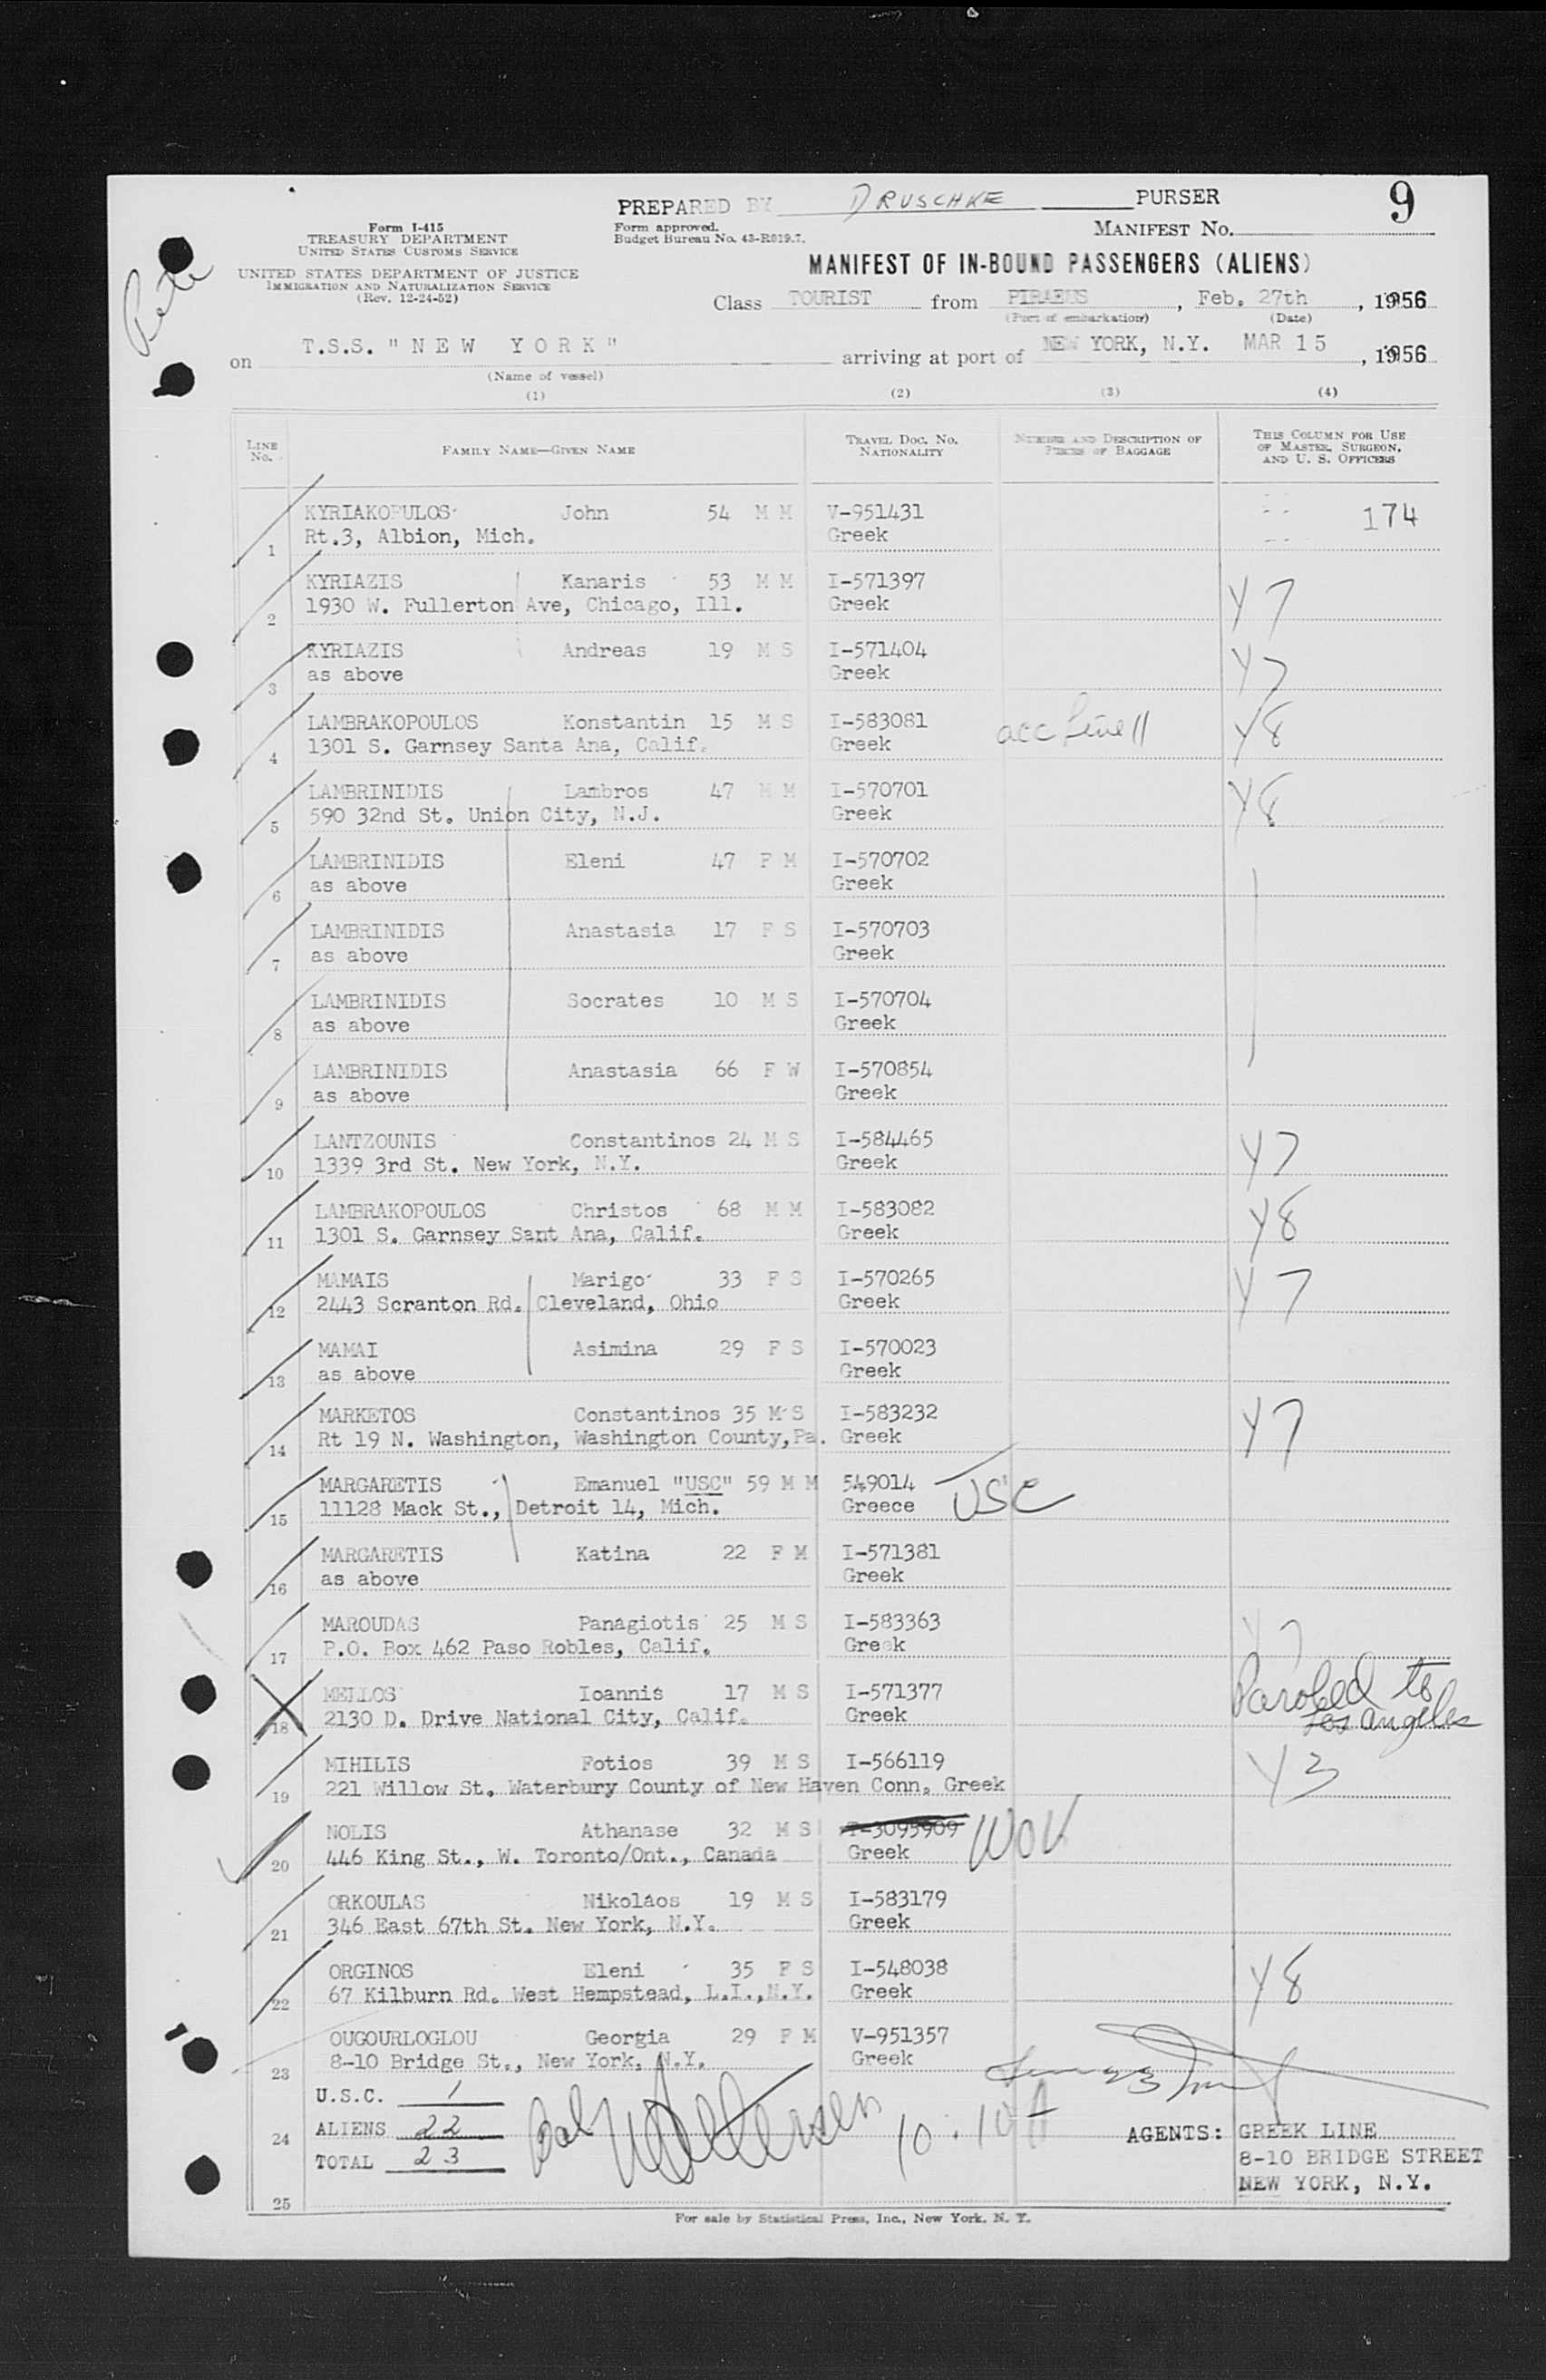 PREPARED BY DRUSCHKE PURSER
9
Form I-415
TREASURY DEPARTMENT
UNITED STATES CUSTOMS SERVICE
UNITED STATES DEPARTMENT OF JUSTICE
IMMIGRATION AND NATURALIZATION SERVICE
(Rev. 12-24-52)
Form approved.
Budget Bureau No. 43-R019.7.
MANIFEST No.
MANIFEST OF IN-BOUND PASSENGERS (ALIENS)
Class TOURIST from PIRAEUS, Feb. 27th, 1956
(Port of embarkation) (Date)
on T.S.S. "NEW YORK" arriving at port of NEW YORK, N.Y. MAR 15, 1956
(Name of vessel)
(1) (2) (3) (4)
LINE No. FAMILY NAME—GIVEN NAME TRAVEL DOC. No. NATIONALITY NUMBER AND DESCRIPTION OF PIECES OF BAGGAGE THIS COLUMN FOR USE OF MASTER, SURGEON, AND U. S. OFFICERS
1 KYRIAKOPULOS John 54 M M V-951431 174
Rt.3, Albion, Mich. Greek
2 KYRIAZIS Kanaris 53 M M I-571397 Y7
1930 W. Fullerton Ave, Chicago, Ill. Greek
3 KYRIAZIS Andreas 19 M S I-571404 Y7
as above Greek
4 LAMBRAKOPOULOS Konstantin 15 M S I-583081 acc line 11 Y8
1301 S. Garnsey Santa Ana, Calif. Greek
5 LAMBRINIDIS Lambros 47 M M I-570701 Y8
590 32nd St. Union City, N.J. Greek
6 LAMBRINIDIS Eleni 47 F M I-570702
as above Greek
7 LAMBRINIDIS Anastasia 17 F S I-570703
as above Greek
8 LAMBRINIDIS Socrates 10 M S I-570704
as above Greek
9 LAMBRINIDIS Anastasia 66 F W I-570854
as above Greek
10 LANTZOUNIS Constantinos 24 M S I-584465 Y7
1339 3rd St. New York, N.Y. Greek
11 LAMBRAKOPOULOS Christos 68 M M I-583082 Y8
1301 S. Garnsey Sant Ana, Calif. Greek
12 MAMAIS Marigo 33 F S I-570265 Y7
2443 Scranton Rd. Cleveland, Ohio Greek
13 MAMAI Asimina 29 F S I-570023
as above Greek
14 MARKETOS Constantinos 35 M S I-583232 Y7
Rt 19 N. Washington, Washington County, Pa. Greek
15 MARGARETIS Emanuel "USC" 59 M M 549014 USC
11128 Mack St., Detroit 14, Mich. Greece
16 MARGARETIS Katina 22 F M I-571381
as above Greek
17 MAROUDAS Panagiotis 25 M S I-583363 Y7
P.O. Box 462 Paso Robles, Calif. Greek
18 MELLOS Ioannis 17 M S I-571377 Paroled to
2130 D. Drive National City, Calif. Greek Los Angeles
19 MIHILIS Fotios 39 M S I-566119 Y3
221 Willow St. Waterbury County of New Haven Conn. Greek
20 NOLIS Athanase 32 M S T-3095909 WOV
446 King St., W. Toronto/Ont., Canada Greek
21 ORKOULAS Nikolaos 19 M S I-583179
346 East 67th St. New York, N.Y. Greek
22 ORGINOS Eleni 35 F S I-548038 Y8
67 Kilburn Rd. West Hempstead, L.I., N.Y. Greek
23 OUGOURLOGLOU Georgia 29 F M V-951357
8-10 Bridge St., New York, N.Y. Greek
U.S.C. 1
24 ALIENS 22 AGENTS: GREEK LINE
TOTAL 23 8-10 BRIDGE STREET
25 NEW YORK, N.Y.
For sale by Statistical Press, Inc., New York, N. Y.